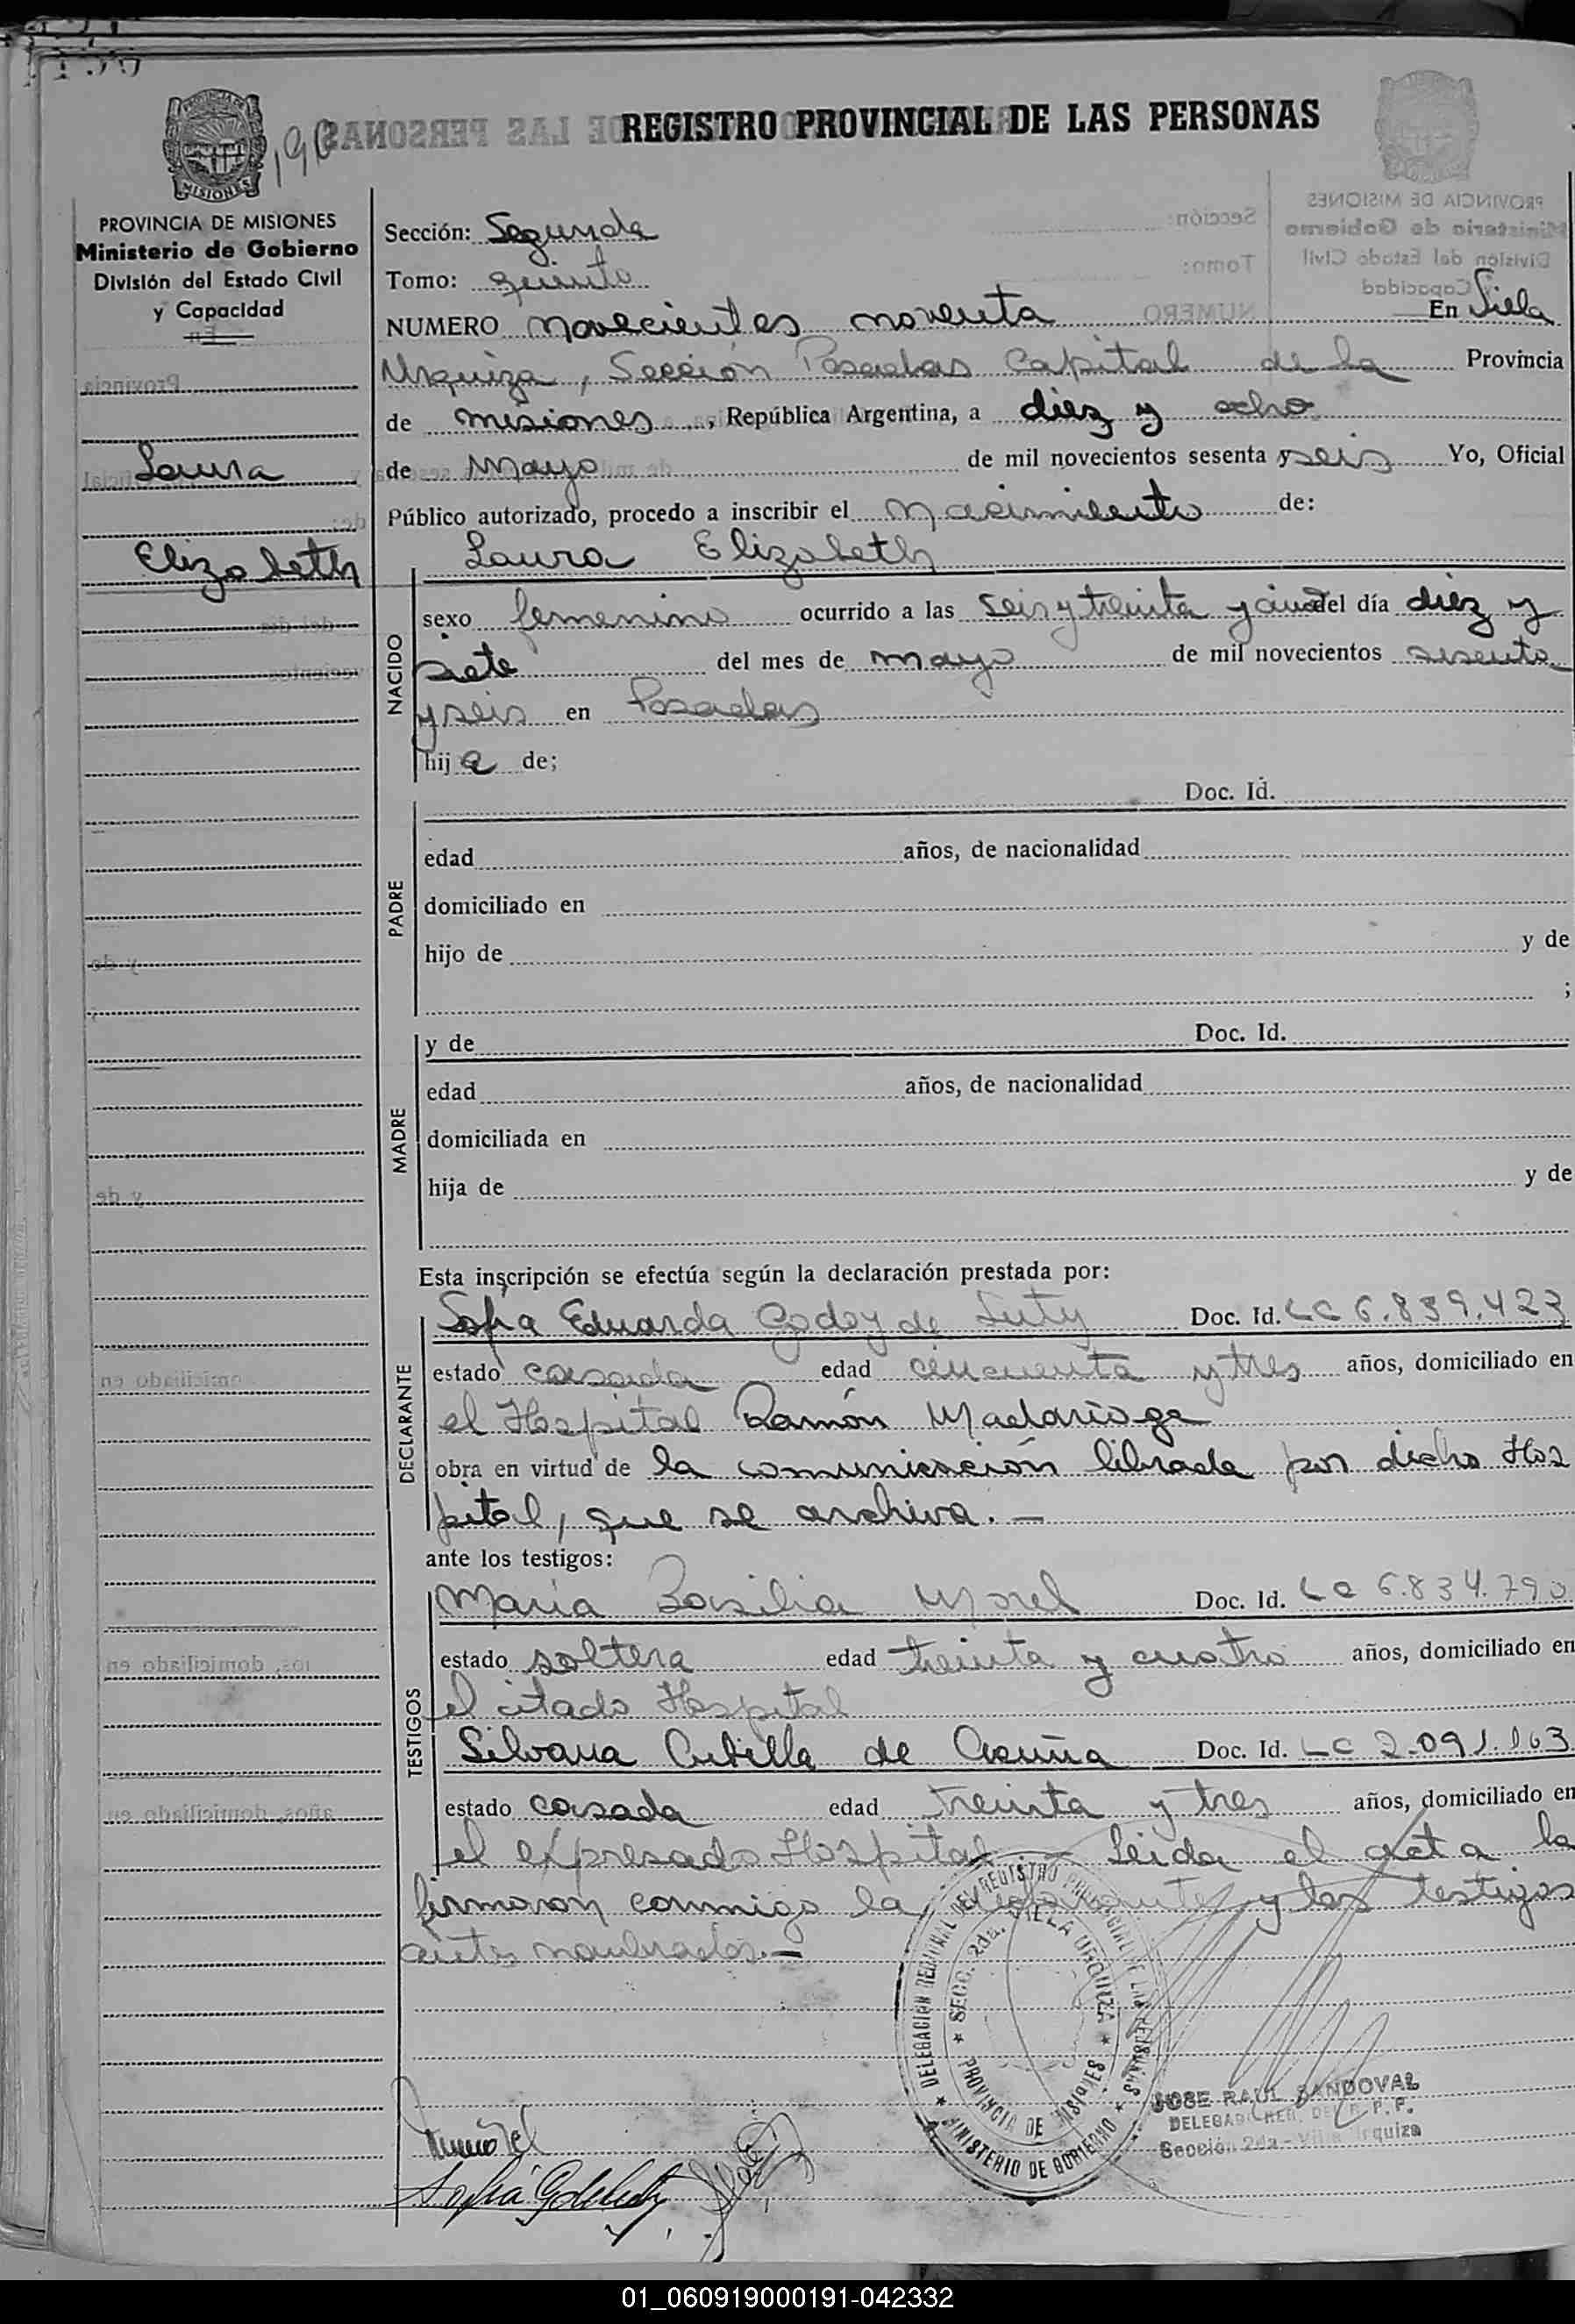 190
REGISTRO PROVINCIAL DE LAS PERSONAS
MISIONES
PROVINCIA DE MISIONES
Ministerio de Gobierno
División del Estado Civil
y Capacidad
Laura
Elizabeth
Sección: Segunda
Tomo: quinto
NUMERO novecientos noventa En Villa
Urquiza, Sección Posadas Capital de la Provincia
de misiones, República Argentina, a diez y ocho
de Mayo de mil novecientos sesenta y seis Yo, Oficial
Público autorizado, procedo a inscribir el nacimiento de:
Laura Elizabeth
NACIDO
sexo femenino ocurrido a las seis y treinta y cinco del día diez y
siete del mes de mayo de mil novecientos sesenta
y seis en Posadas
hija de;
PADRE
Doc. Id.
edad años, de nacionalidad
domiciliado en
hijo de y de
;
MADRE
y de Doc. Id.
edad años, de nacionalidad
domiciliada en
hija de y de
Esta inscripción se efectúa según la declaración prestada por:
DECLARANTE
Sofia Eduarda Godoy de Luty Doc. Id. LC 6.839.423
estado casada edad cincuenta y tres años, domiciliado en
el Hospital Ramón Madariaga
obra en virtud de la comunicación librada por dicho Hos
pital, que se archiva.—
ante los testigos:
TESTIGOS
María Basilia Morel Doc. Id. LC 6.834.790
estado soltera edad treinta y cuatro años, domiciliado en
el citado Hospital
Silvana Cubilla de Acuña Doc. Id. LC 2.091.163
estado casada edad treinta y tres años, domiciliado en
el expresado Hospital.— Leida el acta la
firmaron conmigo la declarante y los testigos
antes nombrados.—
DELEGACION REGIONAL DEL REGISTRO PROVINCIAL DE LAS PERSONAS
MINISTERIO DE GOBIERNO
SECC. 2da. VILLA URQUIZA
PROVINCIA DE MISIONES
JOSE RAUL SANDOVAL
Sección 2da - Villa Urquiza
01_060919000191-042332